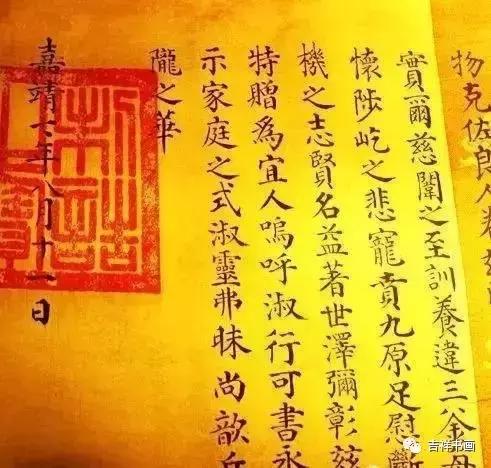 物克佐良人
實爾慈闈之至訓養違三釜每
懷陟屺之悲寵賁九原足慰斷
機之志賢名益著世澤彌彰茲
特贈為宜人嗚呼淑行可書永
示家庭之式淑靈弗昧尚歆丘
隴之華
嘉靖七年八月十一日
制誥
吉祥书画